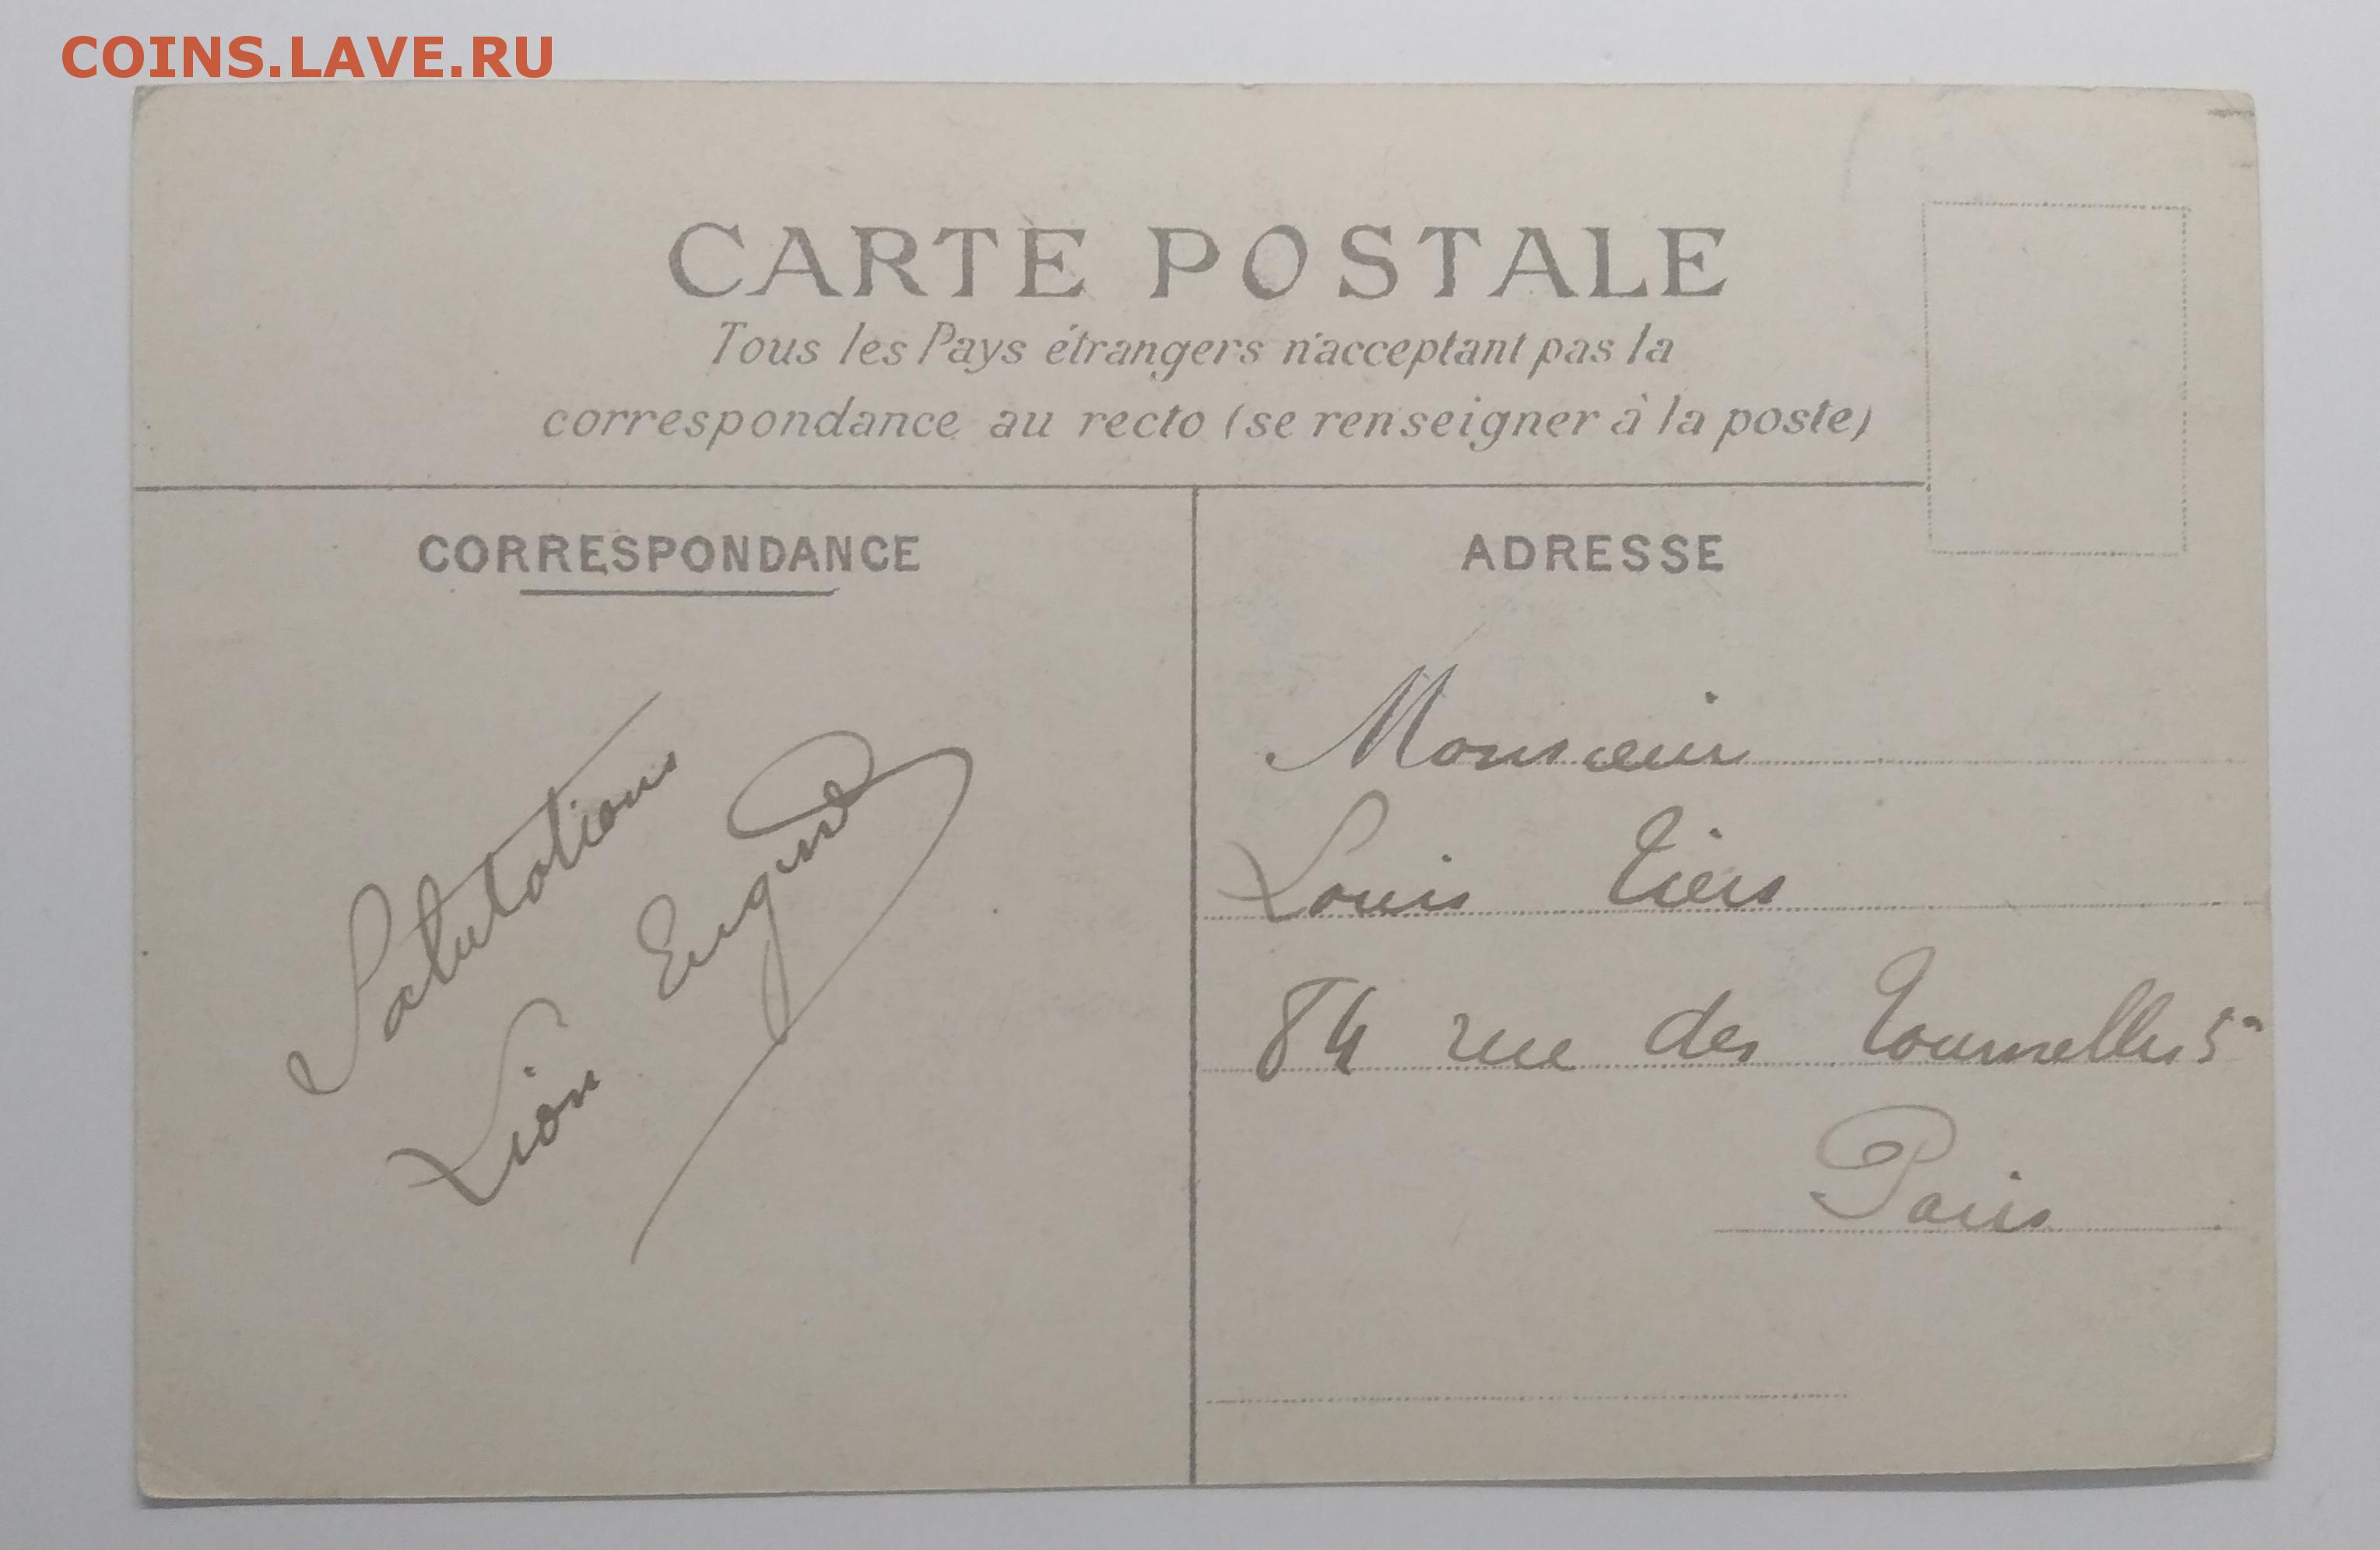 COINS.LAVE.RU
CARTE POSTALE
Tous les Pays étrangers n'acceptant pas la
correspondance au recto (se renseigner à la poste)
CORRESPONDANCE
Salutations
Lion Eugène
ADRESSE
Monsieur
Louis Tiers
84 rue des Tournelles
Paris